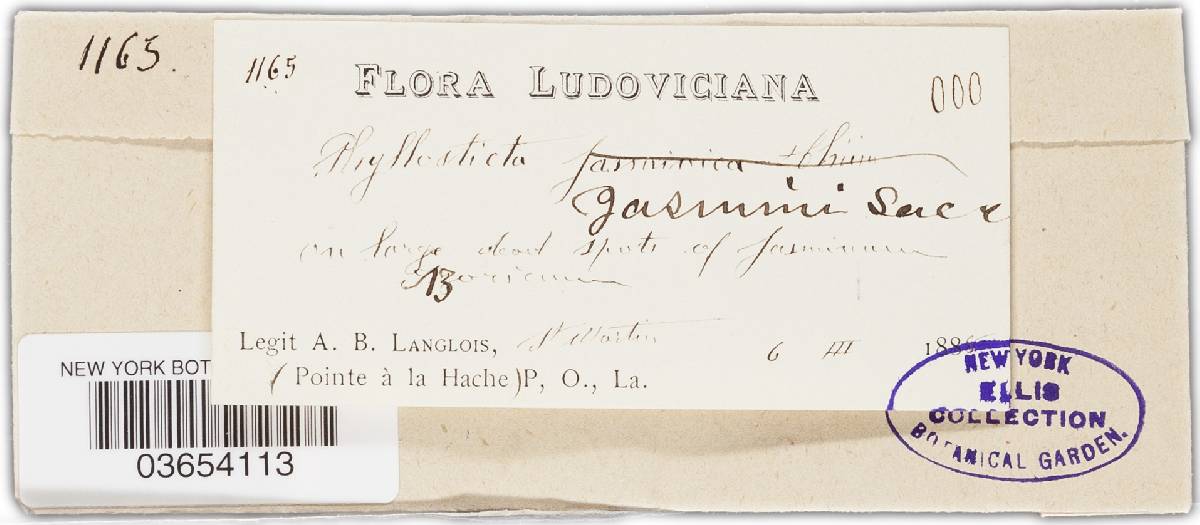 1165.
1165
FLORA LUDOVICIANA
000
Phyllosticta jasminica Thüm
Jasmini Sacc
on large dead spots of Jasminum
13
Legit A. B. LANGLOIS, St Martin
6 III 188
(Pointe à la Hache) P, O., La.
NEW YORK BOT
03654113
NEW YORK
ELLIS
COLLECTION
BOTANICAL GARDEN.